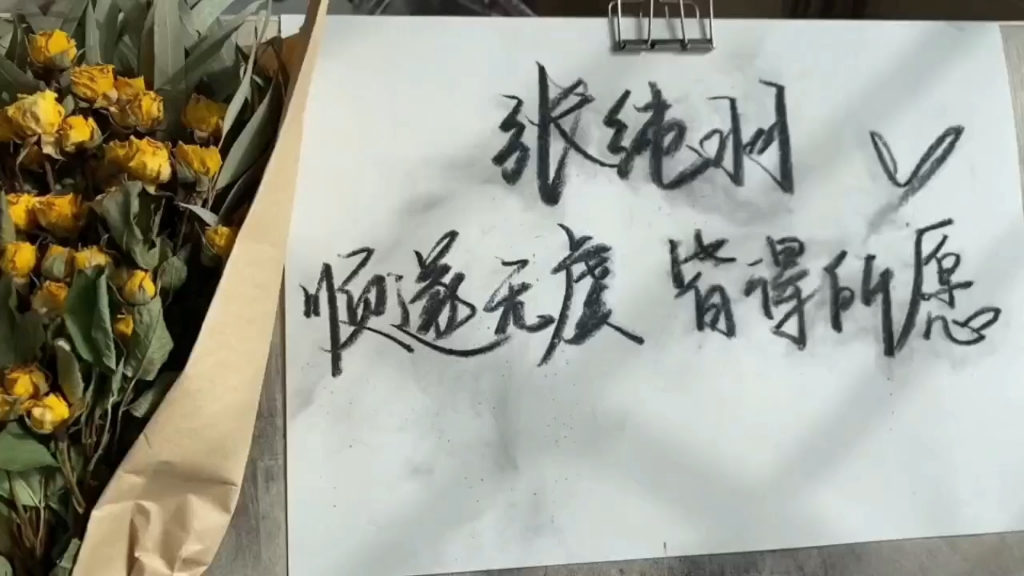 张纯羽
顺遂无虞 皆得所愿